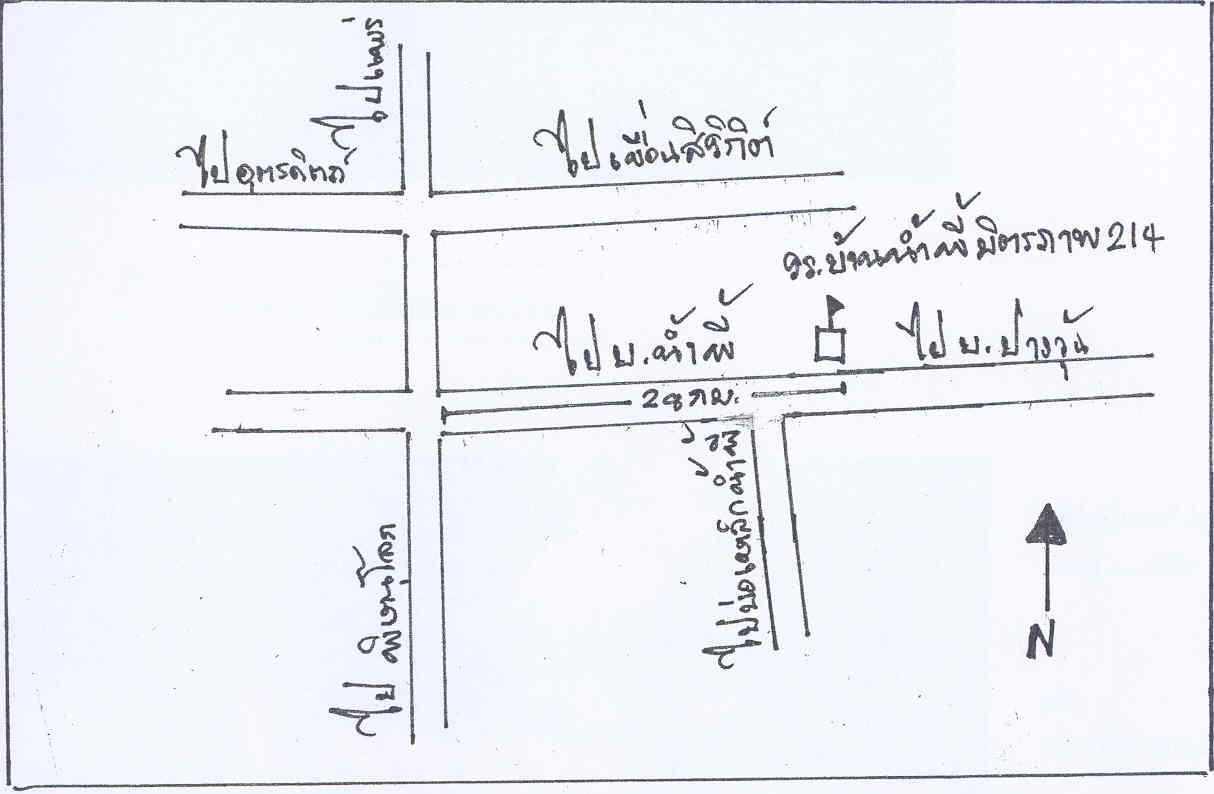 ไปแพร่
ไปอุตรดิตถ์
ไปเขื่อนสิริกิติ์
รร.บ้านน้ำพี้มิตรภาพ 214
ไป บ.น้ำพี้
ไป บ.ปางวุ้น
28 กม.
ไปบ่อเหล็กน้ำพี้
ไป พิษณุโลก
N